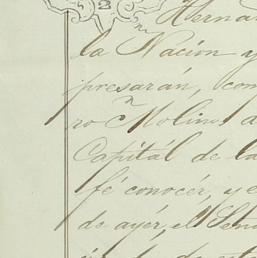 2
Herna
la Nacion y
presarán, com
ro Molino d
Capitál de la
fé conocér, y e
de ayer, el Señ